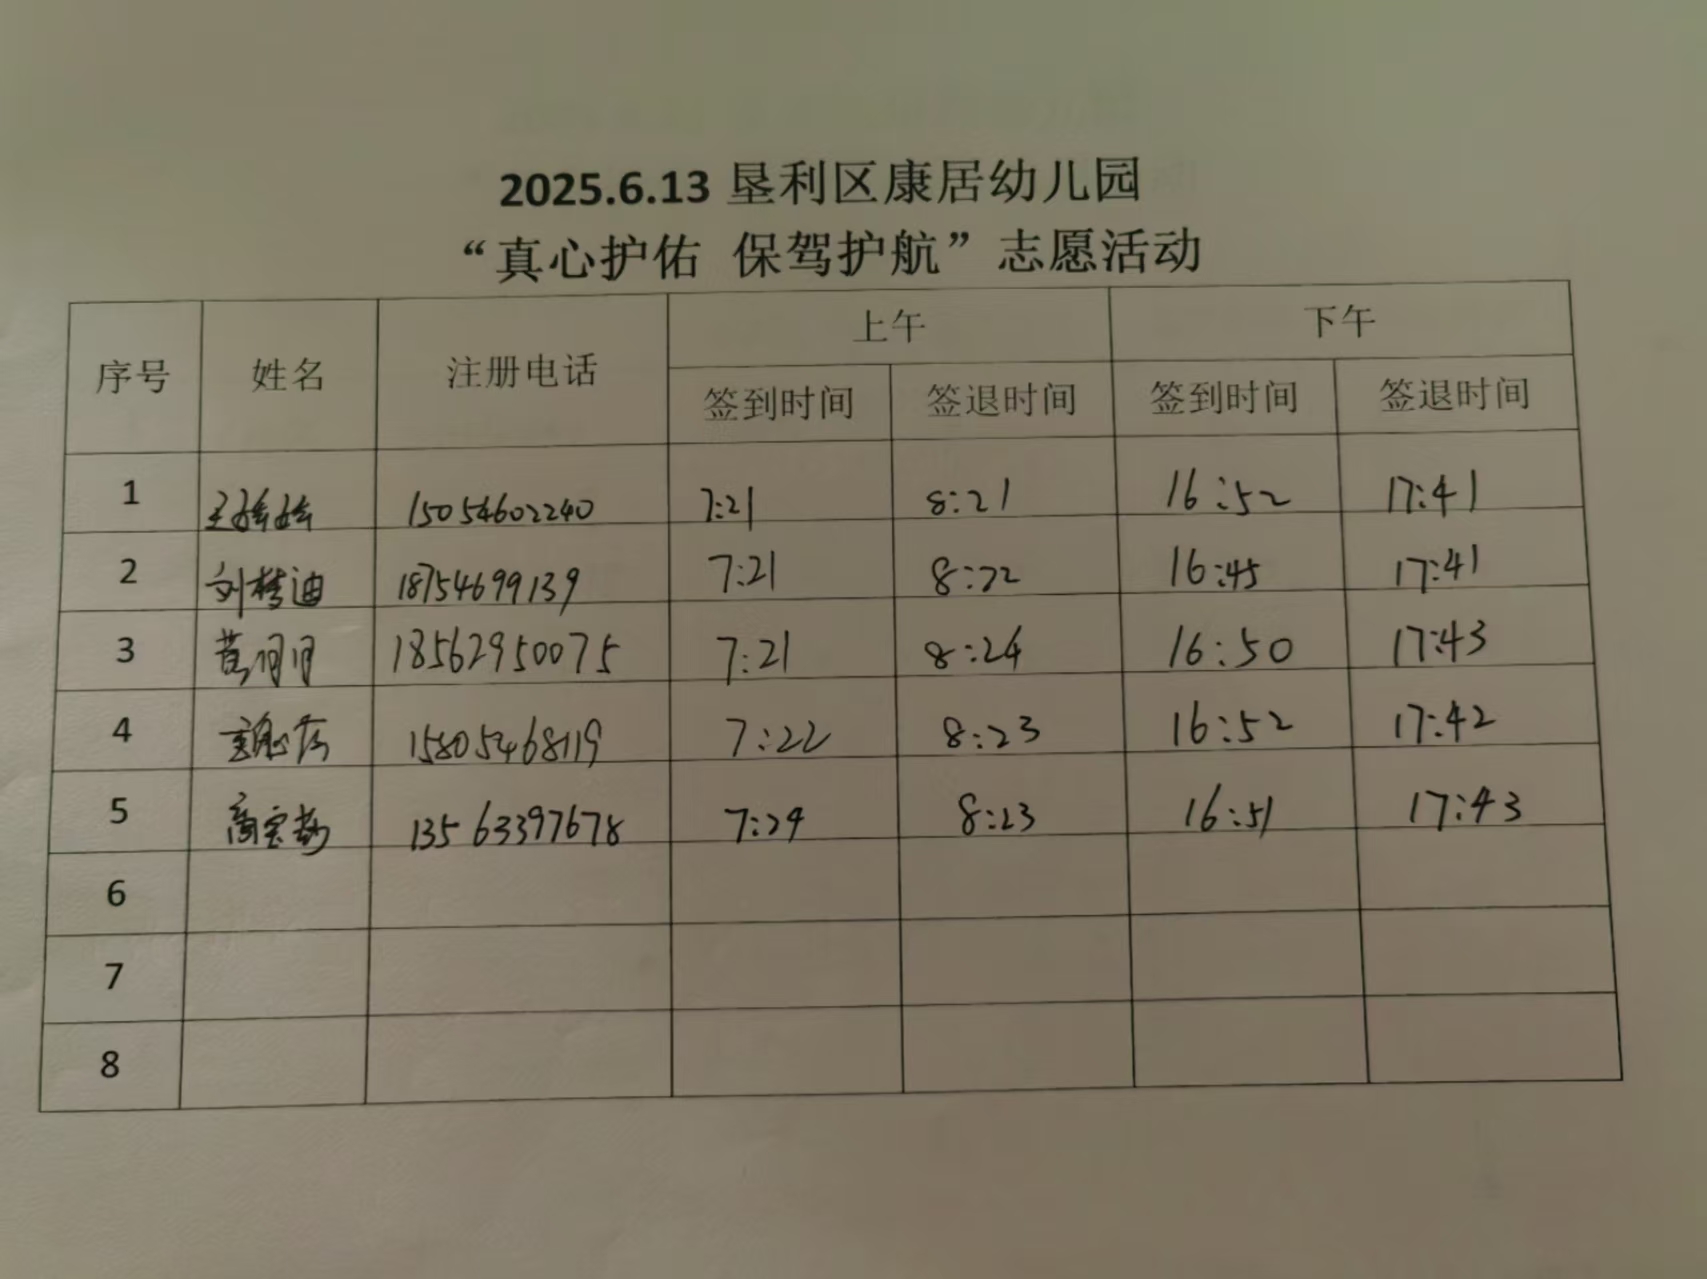 2025.6.13 垦利区康居幼儿园
“真心护佑 保驾护航”志愿活动
序号 姓名 注册电话 上午 下午
签到时间 签退时间 签到时间 签退时间
1 王婷婷 15054602240 7:21 8:21 16:52 17:41
2 刘梦迪 18754699139 7:21 8:22 16:45 17:41
3 黄月月 18562950075 7:21 8:24 16:50 17:43
4 15805468119 7:22 8:23 16:52 17:42
5 13563397678 7:24 8:23 16:51 17:43
6
7
8